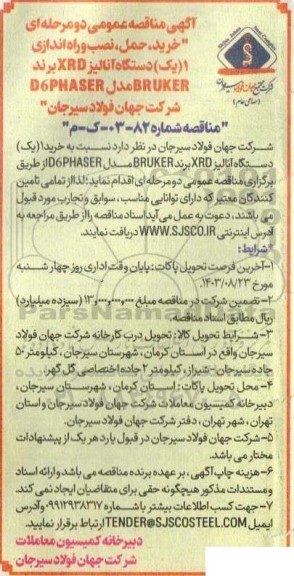 آگهی مناقصه عمومی دو مرحله ای
"خرید، حمل، نصب و راه اندازی
۱(یک) دستگاه آنالیز XRD برند
BRUKER مدل D6PHASER
شرکت جهان فولاد سیرجان"
"مناقصه شماره ۸۲-۰۳-ک-م"
(سهامی عام)
شرکت جهان فولاد سیرجان در نظر دارد نسبت به خرید ۱(یک)
دستگاه آنالیز XRD برند BRUKER مدل D6PHASER از طریق
برگزاری مناقصه عمومی دو مرحله ای اقدام نماید؛ لذا از تمامی تامین
کنندگان معتبر که دارای توانایی مناسب، سوابق و تجارب مورد قبول
می باشند، دعوت به عمل می آید اسناد مناقصه را از طریق مراجعه به
آدرس اینترنتی WWW.SJSCO.IR دریافت نمایند.
*شرایط:
۱-آخرین فرصت تحویل پاکات: پایان وقت اداری روز چهار شنبه
مورخ ۱۴۰۳/۰۸/۲۳.
۲-تضمین شرکت در مناقصه مبلغ ۱۳,۰۰۰,۰۰۰,۰۰۰ (سیزده میلیارد)
ریال مطابق اسناد مناقصه.
۳-شرایط تحویل کالا: تحویل درب کارخانه شرکت جهان فولاد
سیرجان واقع در استان کرمان، شهرستان سیرجان، کیلومتر ۵۰
جاده سیرجان-شیراز، کیلومتر ۲ جاده اختصاصی گل گهر.
۴-محل تحویل پاکات: استان کرمان، شهرستان سیرجان،
دبیرخانه کمیسیون معاملات شرکت جهان فولاد سیرجان و استان
تهران، شهر تهران، دفتر شرکت جهان فولاد سیرجان.
۵-شرکت جهان فولاد سیرجان در قبول یا رد هر یک از پیشنهادات
مختار می باشد.
۶-هزینه چاپ آگهی، بر عهده برنده مناقصه می باشد و ارائه اسناد
و مستندات مذکور هیچگونه حقی برای متقاضیان ایجاد نمی کند.
۷-جهت کسب اطلاعات بیشتر با شماره ۰۹۹۱۲۹۳۸۳۱۷ و آدرس
ایمیل TENDER@SJSCOSTEEL.COM ارتباط برقرار نمایید.
دبیرخانه کمیسیون معاملات
شرکت جهان فولاد سیرجان